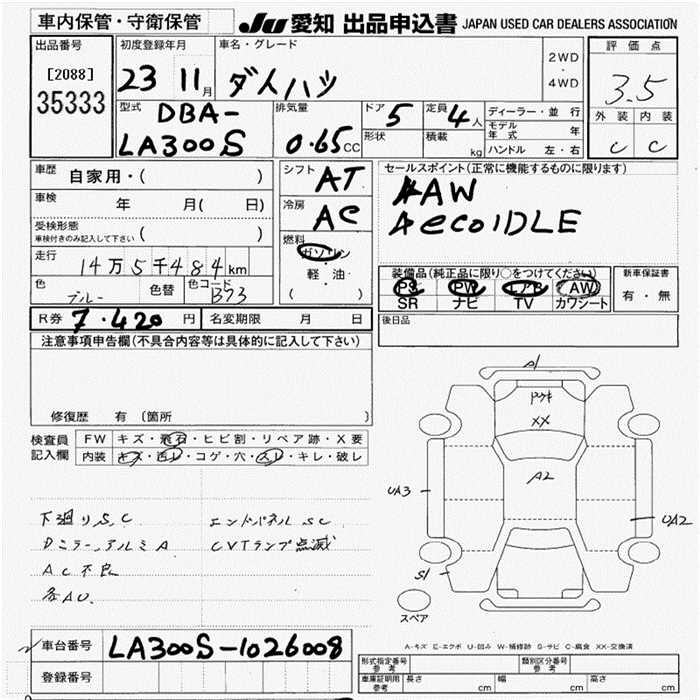 車内保管・守衛保管
JU 愛知 出品申込書 JAPAN USED CAR DEALERS ASSOCIATION
出品番号
[2088]
35333
初度登録年月
23 11月
車名・グレード
ダイハツ
2WD
・
4WD
評価点
3.5
外装 内装
C C
型式
DBA-
LA300S
排気量
0.65CC
ドア 5
形状
定員 4人
積載 kg
ディーラー・並行
モデル年式 年
ハンドル 左・右
車歴 自家用・( )
車検 年 月( 日)
受検形態
車検付きのみ記入して下さい ( )
走行
14万5千484km
色 ブルー 色替 色コード B73
シフト AT
冷房 AC
燃料
ガソリン
・
軽油・
( )
セールスポイント(正常に機能するものに限ります)
AAW
AecoIDLE
装備品(純正品に限り○をつけてください)
PS PW エアB AW
SR ナビ TV カワシート
新車保証書
有・無
後日品
R券 7.420円 名変期限 月 日
注意事項申告欄(不具合内容等は具体的に記入して下さい)
修復歴 有 〔箇所 〕
検査員
記入欄
FW キズ・飛石・ヒビ割・リペア跡・X要
内装 キズ・汚レ・コゲ・穴・スレ・キレ・破レ
下廻りS.C エンドパネルSC
Dミラー.アルミA CVTランプ点滅
AC不良
各AU.
A1
ドケキ
XX
A2
UA3
UA2
S1
スペア
A-キズ E-エクボ U-凹み W-補修跡 S-サビ C-腐食 XX-交換済
車台番号 LA300S-1026008
登録番号
形式指定番号 参考 類別区分番号 参考
車庫証明用 参考 長さ cm 幅 cm 高さ cm